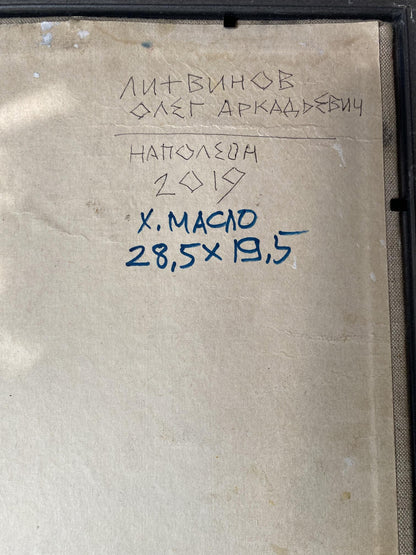 ЛИТВИНОВ
ОЛЕГ АРКАДЬЕВИЧ
НАПОЛЕОН
2019
Х. МАСЛО
28,5 X 19,5